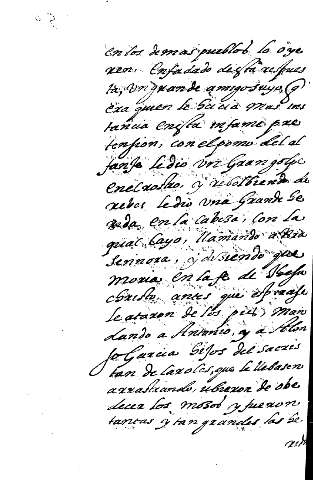 en los demas pueblos lo oye
ren, Enfadado de esta respues
ta, Un grande amigo suyo, q
era quien le hacia mas ins
tancia en esta infame pre
tension, con el pomo del al
fanje le dio Un Gran golpe
en el rostro, y rebolbiendo de
rebes le dio Una Grande he
rida en la cabeza, con la
qual cayo, llamando a Nra
Sennora, y disiendo que
moria en la fe de Jhesu
christo, antes que espirase
le ataron de los pies, man
dando a Antonio, y a Alon
so Garcia hijos del sacris
tan de Laroles, que le llebasen
arrastrando, ubieron de obe
decer los mosos y fueron
tantas y tan grandes las he